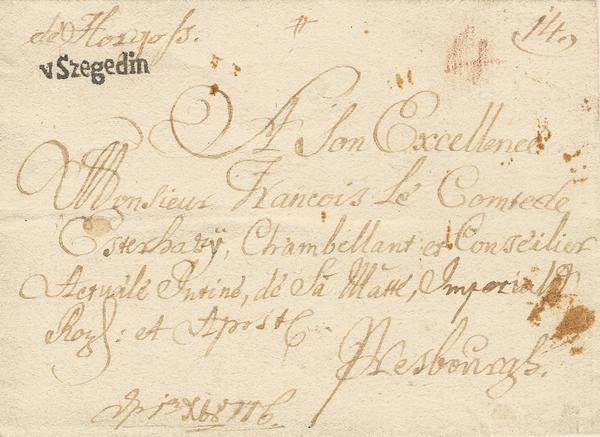 de Horgoss.
14.
v Szegedin
A Son Excellence
Monsieur Francois Le Comte de
Esterhazÿ, Chambellant et Conseilier
Actuële Intiné, dé Sá Matté, Imperiale
Roy: et Apost
Presbourgh.